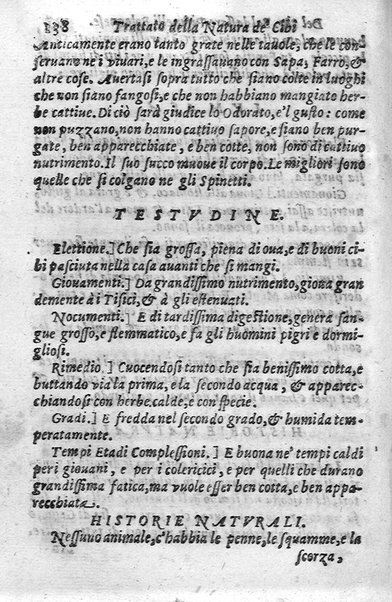 138 Trattato della Natura de' Cibi
Anticamente erano tanto grate nelle tauole, che le con
seruauano ne i viuari, e le ingrassauano con Sapa, Farro, &
altre cose. Auertasi sopra tutto che siano colte in luoghi
che non siano fangosi, e che non habbiano mangiato her
be cattiue. Di ciò sarà giudice lo Odorato, e'l gusto: come
non puzzano, non hanno cattiuo sapore, e siano ben pur
gate, ben apparecchiate, e ben cotte, non sono di cattiuo
nutrimento. Il suo succo muoue il corpo. Le migliori sono
quelle che si colgano ne gli Spinetti.
TESTVDINE.
Elettione.] Che sia grossa, piena di oua, e di buoni ci-
bi pasciuta nella casa auanti che si mangi.
Giouamenti.] Da grandissimo nutrimento, gioua gran
demente à i Tisici, & à gli estenuati.
Nocumenti.] E di tardissima digestione, genera san-
gue grosso, e flemmatico, e fa gli huomini pigri e dormi-
gliosi.
Rimedio.] Cuocendosi tanto che sia benissimo cotta, e
buttando via la prima, e la secondo acqua, & apparec-
chiandosi con herbe calde, e con specie.
Gradi.] E fredda nel secondo grado, & humida tem-
peratamente.
Tempi Etadi Complessioni.] E buona ne' tempi caldi
per i giouani, e per i colericici, e per quelli che durano
grandissima fatica, ma vuole esser ben cotta, e ben appa-
recchiata.
HISTORIE NATVRALI.
Nessuno animale, c'habbia le penne, le squamme, e la
scorza,